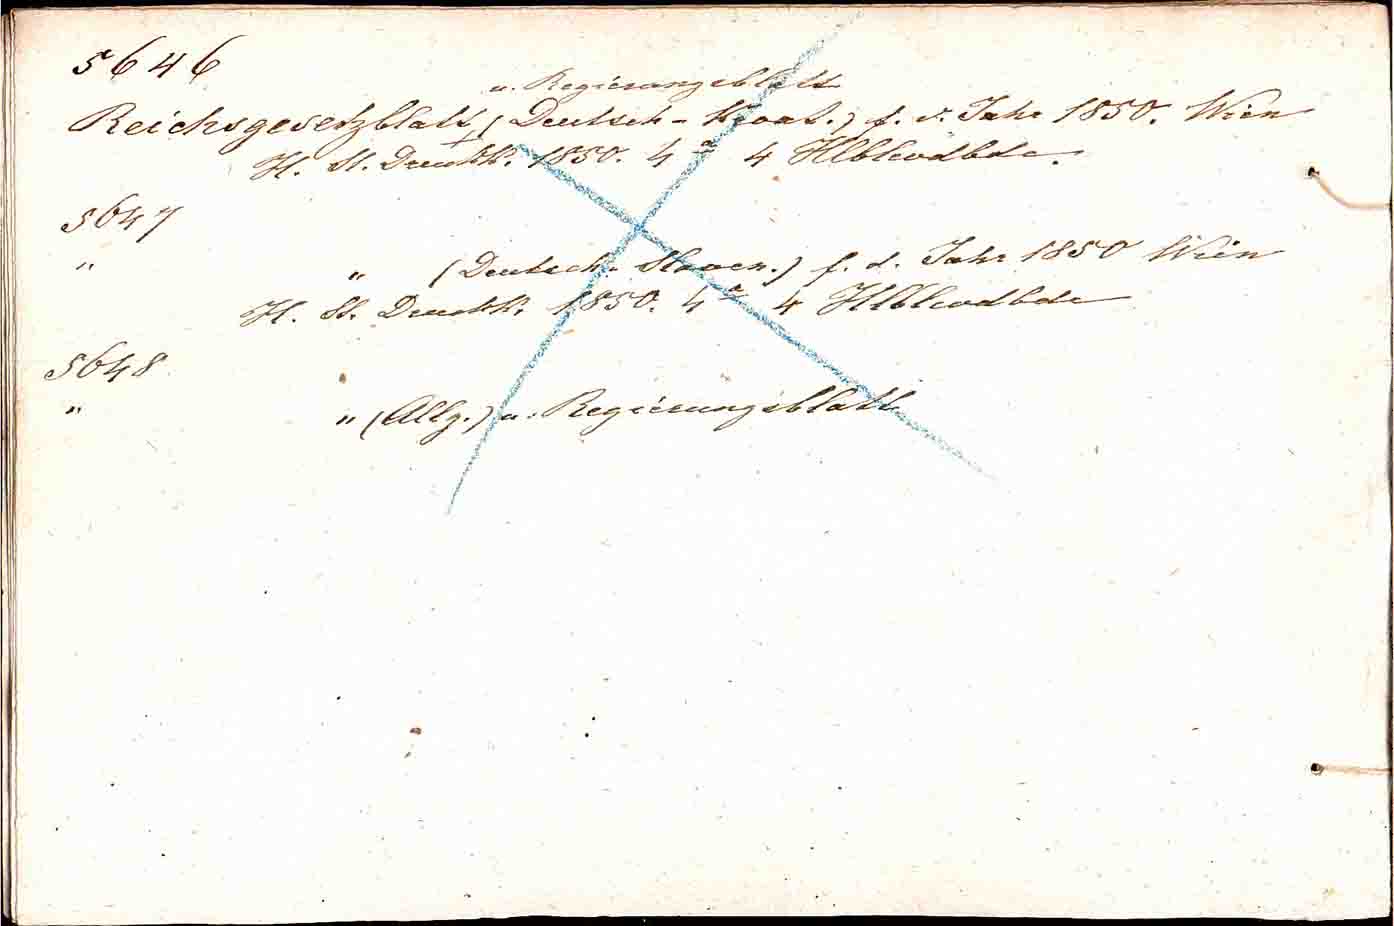 5646
u. Regierungsblatt
Reichsgesetzblatt (Deutsch-Kroat.) f. d. Jahr 1850. Wien
H. St. Druck. 1850. 4° 4 Hlblwdbde.
5647
" " (Deutsch-Sloven.) f. d. Jahr 1850 Wien
H. St. Druck. 1850. 4° 4 Hlblwdbde
5648
" " (Allg.) u. Regierungsblatt